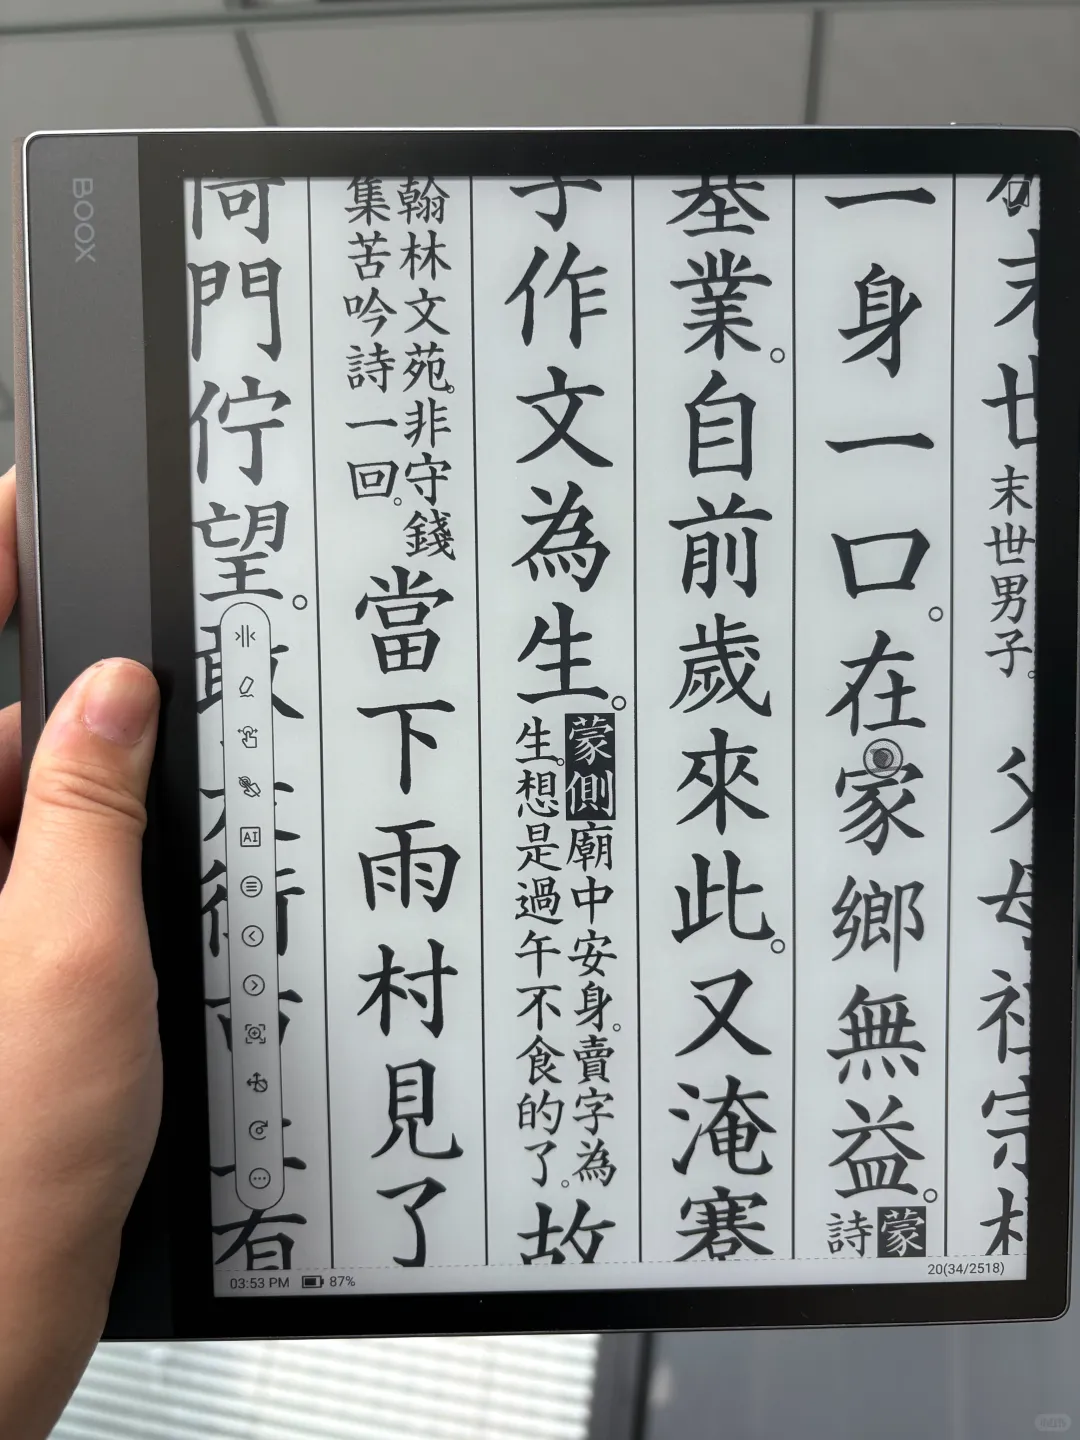 末世
末世男子。
父母
一身一口。在家鄉無益。
蒙
詩
基業。自前歲來此。又淹蹇
子作文為生。
蒙側廟中安身。賣字為
生。想是過午不食的了。
故
翰林文苑。非守錢
集苦吟詩一回。
當下雨村見了
倚門佇望。敢
有
BOOX
AI
03:53 PM 87%
20(34/2518)